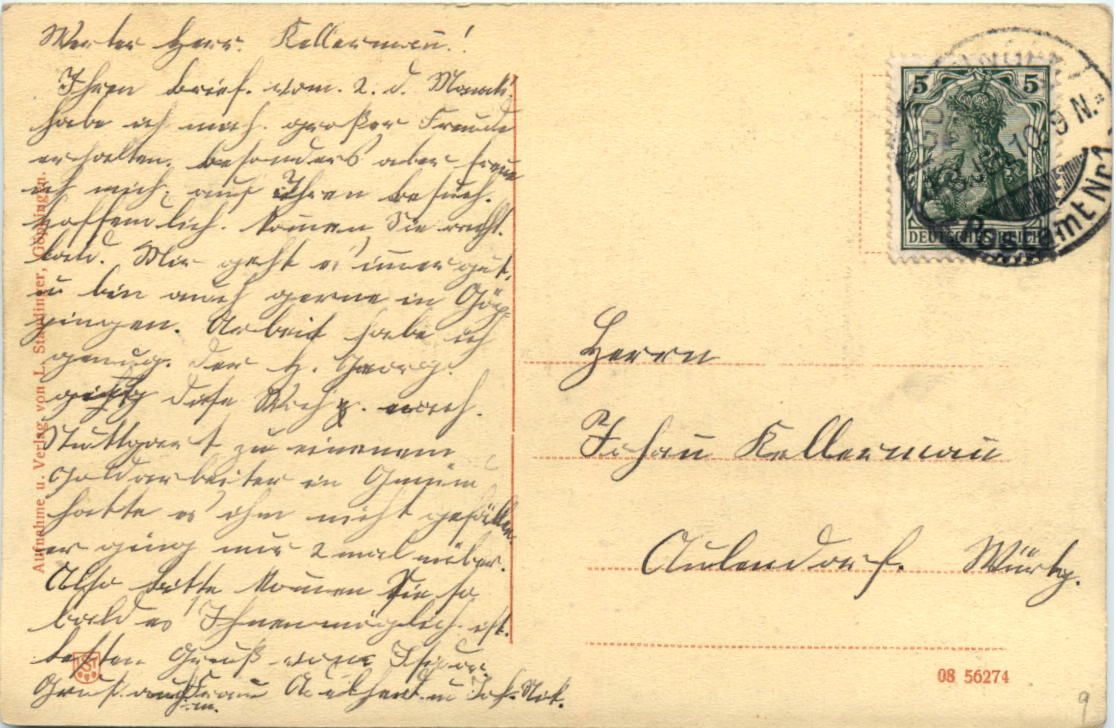 Werter Herr. Kellermañ!
Ihren brief. vom. 2. d. Monats.
habe ich mit großer Freude
erhalten. besonders aber freue
ich mich. auf Ihren besuch.
hoffendlich. komen Sie recht.
bald. Mir geht es imer gut,
u bin auch gerne in Göp
pingen. Arbeit habe ich
genug. der H. Georg.
ging diese Woche. nach.
Stuttgart zu einenem
Goldarbeiter in Gmünd
hatte es ihm nicht gefallen
er ging nur 2 mal nüber.
Also bitte komen Sie so
bald es Ihnen möglich ist.
besten Gruß von
Gruß auch Frau
Aufnahme u. Verlag von L. Staudinger, Göppingen.
5 5
DEUTSCHES REICH
10. 8-9 N.
Postamt Nr 1
Herrn
Johañ Kellermañ
Aulendorf. Würtbg.
08 56274
9